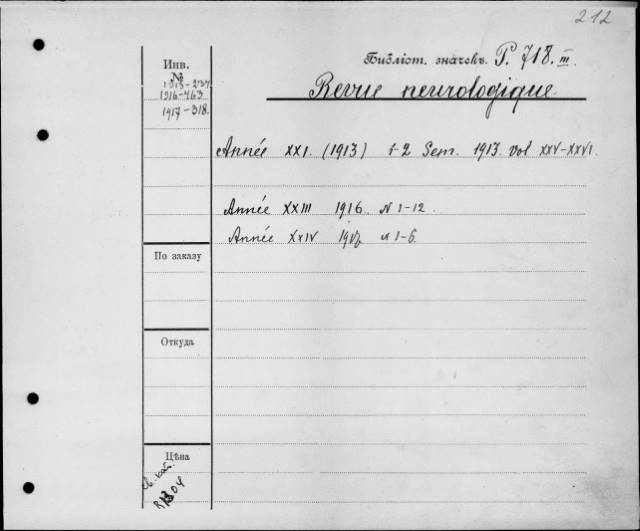 212
Инв.
№
1916-763
1917-318.
Библіот. значекъ P. 718. III
Revue neurologique
Année XXI. (1913) 1-2 Sem. 1913. vol XXV-XXVI.
Année XXIII 1916. N 1-12.
Année XXIV 1917 N 1-6.
По заказу
Откуда
Цѣна